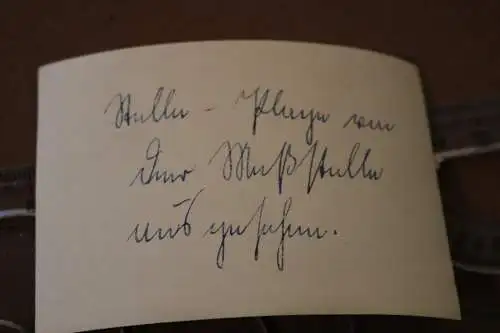 Stella - Plage von
der Meßstelle
aus gesehen.